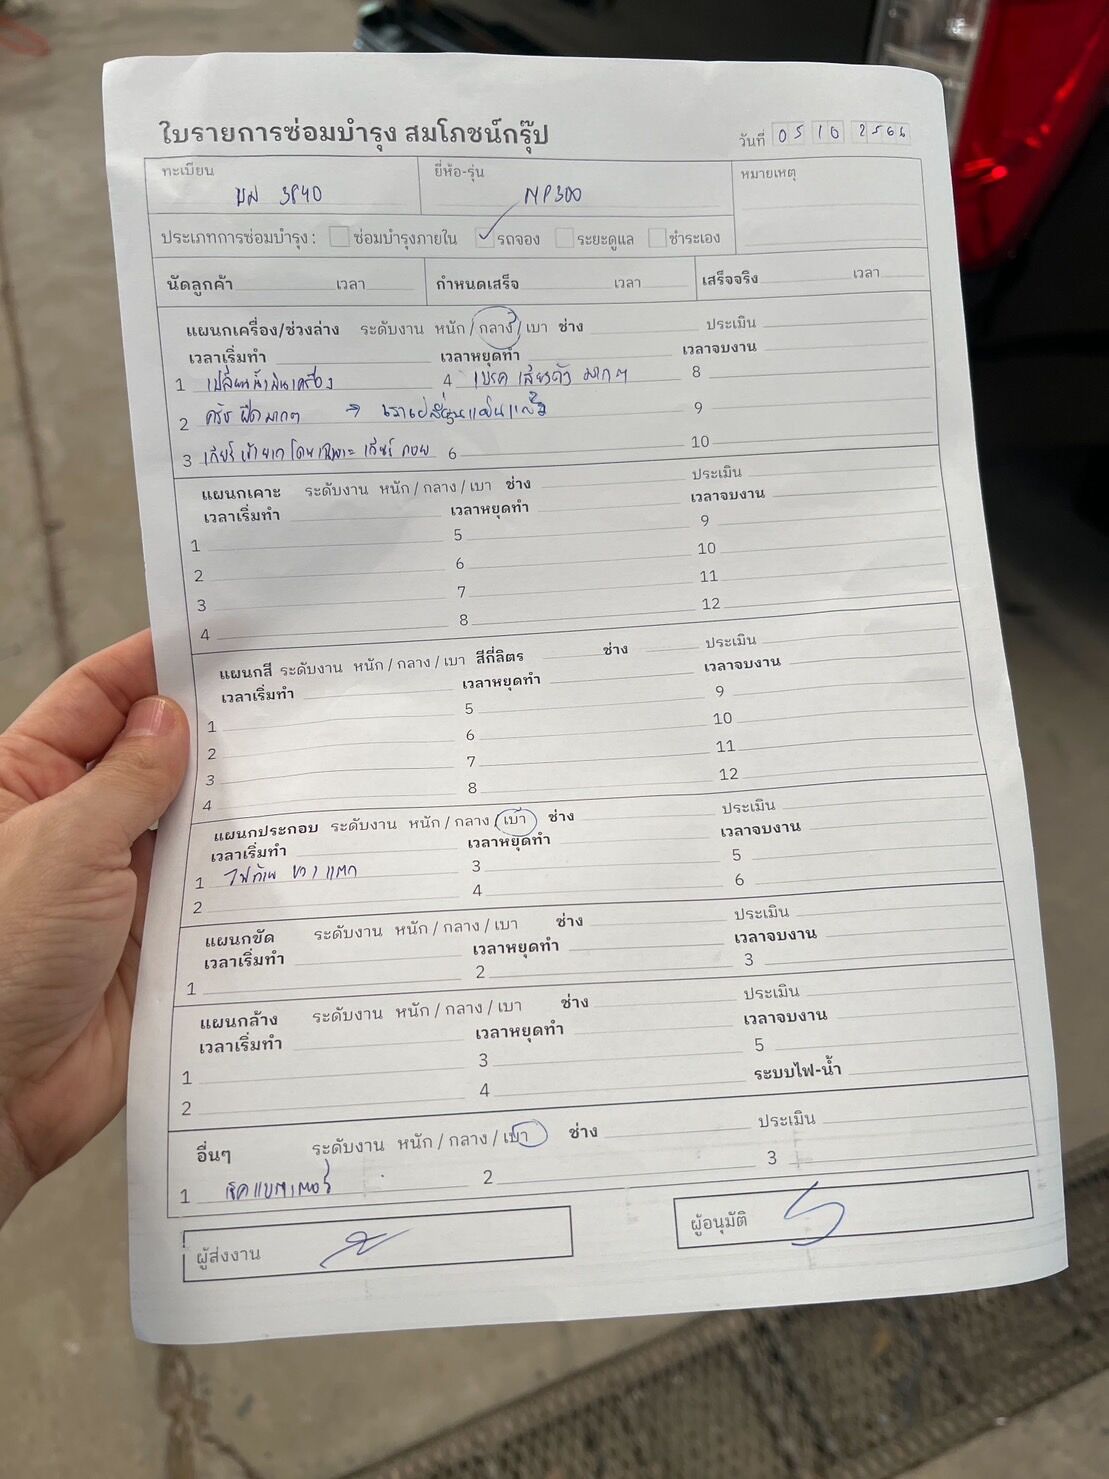 ใบรายการซ่อมบำรุง สมโภชน์กรุ๊ป
วันที่ 05 10 2566
ทะเบียน ยี่ห้อ-รุ่น หมายเหตุ
3840 NP300
ประเภทการซ่อมบำรุง : ซ่อมบำรุงภายใน รถจอง ระยะดูแล ชำระเอง
นัดลูกค้า เวลา กำหนดเสร็จ เวลา เสร็จจริง เวลา
แผนกเครื่อง/ช่วงล่าง ระดับงาน หนัก / กลาง / เบา ช่าง ประเมิน
เวลาเริ่มทำ เวลาหยุดทำ เวลาจบงาน
1 เปลี่ยนน้ำมันเครื่อง 4 เบรค เสียงดัง มากๆ 8
2 ครัช ฝืดมากๆ → 5 9
3 เกียร์ โดยเฉพาะ เกียร์ ถอย 6 10
แผนกเคาะ ระดับงาน หนัก / กลาง / เบา ช่าง ประเมิน
เวลาเริ่มทำ เวลาหยุดทำ เวลาจบงาน
1 5 9
2 6 10
3 7 11
4 8 12
แผนกสี ระดับงาน หนัก / กลาง / เบา สีกี่ลิตร ช่าง ประเมิน
เวลาเริ่มทำ เวลาหยุดทำ เวลาจบงาน
1 5 9
2 6 10
3 7 11
4 8 12
แผนกประกอบ ระดับงาน หนัก / กลาง / เบา ช่าง ประเมิน
เวลาเริ่มทำ เวลาหยุดทำ เวลาจบงาน
1 ไฟท้าย ขวา แตก 3 5
2 4 6
แผนกขัด ระดับงาน หนัก / กลาง / เบา ช่าง ประเมิน
เวลาเริ่มทำ เวลาหยุดทำ เวลาจบงาน
1 2 3
แผนกล้าง ระดับงาน หนัก / กลาง / เบา ช่าง ประเมิน
เวลาเริ่มทำ เวลาหยุดทำ เวลาจบงาน
1 3 5
2 4 ระบบไฟ-น้ำ
อื่นๆ ระดับงาน หนัก / กลาง / เบา ช่าง ประเมิน
1 เช็คแบตเตอรี่ 2 3
ผู้ส่งงาน ผู้อนุมัติ